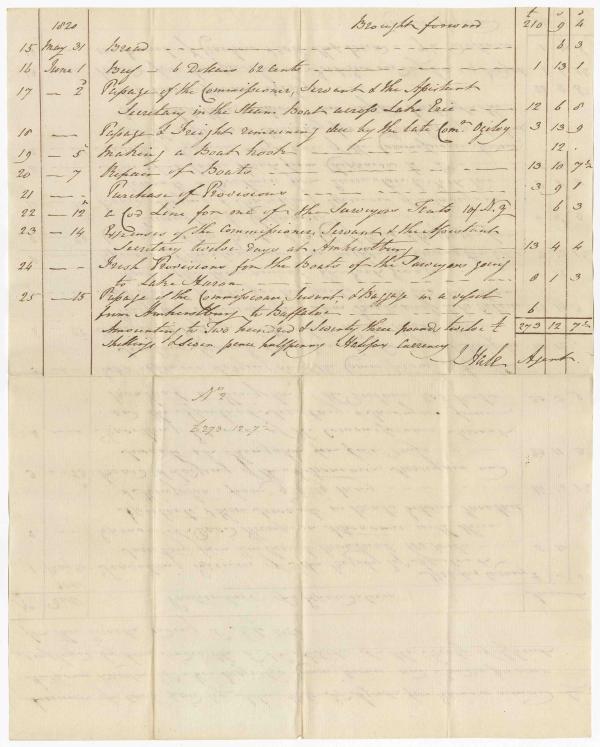 £ s d
1820 Brought forward 210 9 4
15 May 31 Bread 6 3
16 June 1 Beef – 6 Dollars 62 cents 1 13 1
17 – 2 Passage of the Commissioner, Servant & the Assistant
Secretary in the Steam Boat across Lake Erie 12 6 8
18 – – Passage & Freight remaining due by the late Comr. Ogilvy 3 13 9
19 – 5 Making a Boat hook 12 .
20 – 7 Repairs of Boats 13 10 7½
21 – – Purchase of Provisions 3 9 1
22 – 12 a Cod Line for one of the Surveyors Tents 6 3
23 – 14 Expenses of the Commissioner, Servant & the Assistant
Secretary twelve days at Amherstburg 13 4 4
24 – – Fresh Provisions for the Boats of the Surveyors going
to Lake Huron 8 1 3
25 – 15 Passage of the Commissioner Servant & Baggage in a vessel
from Amherstburg to Buffaloe 6
Amounting to Two hundred & Seventy three pounds twelve £ 273 12 7½
Shillings & Seven pence halfpenny Halifax Currency
J. Hale Agent
No 2
£273-12-7½